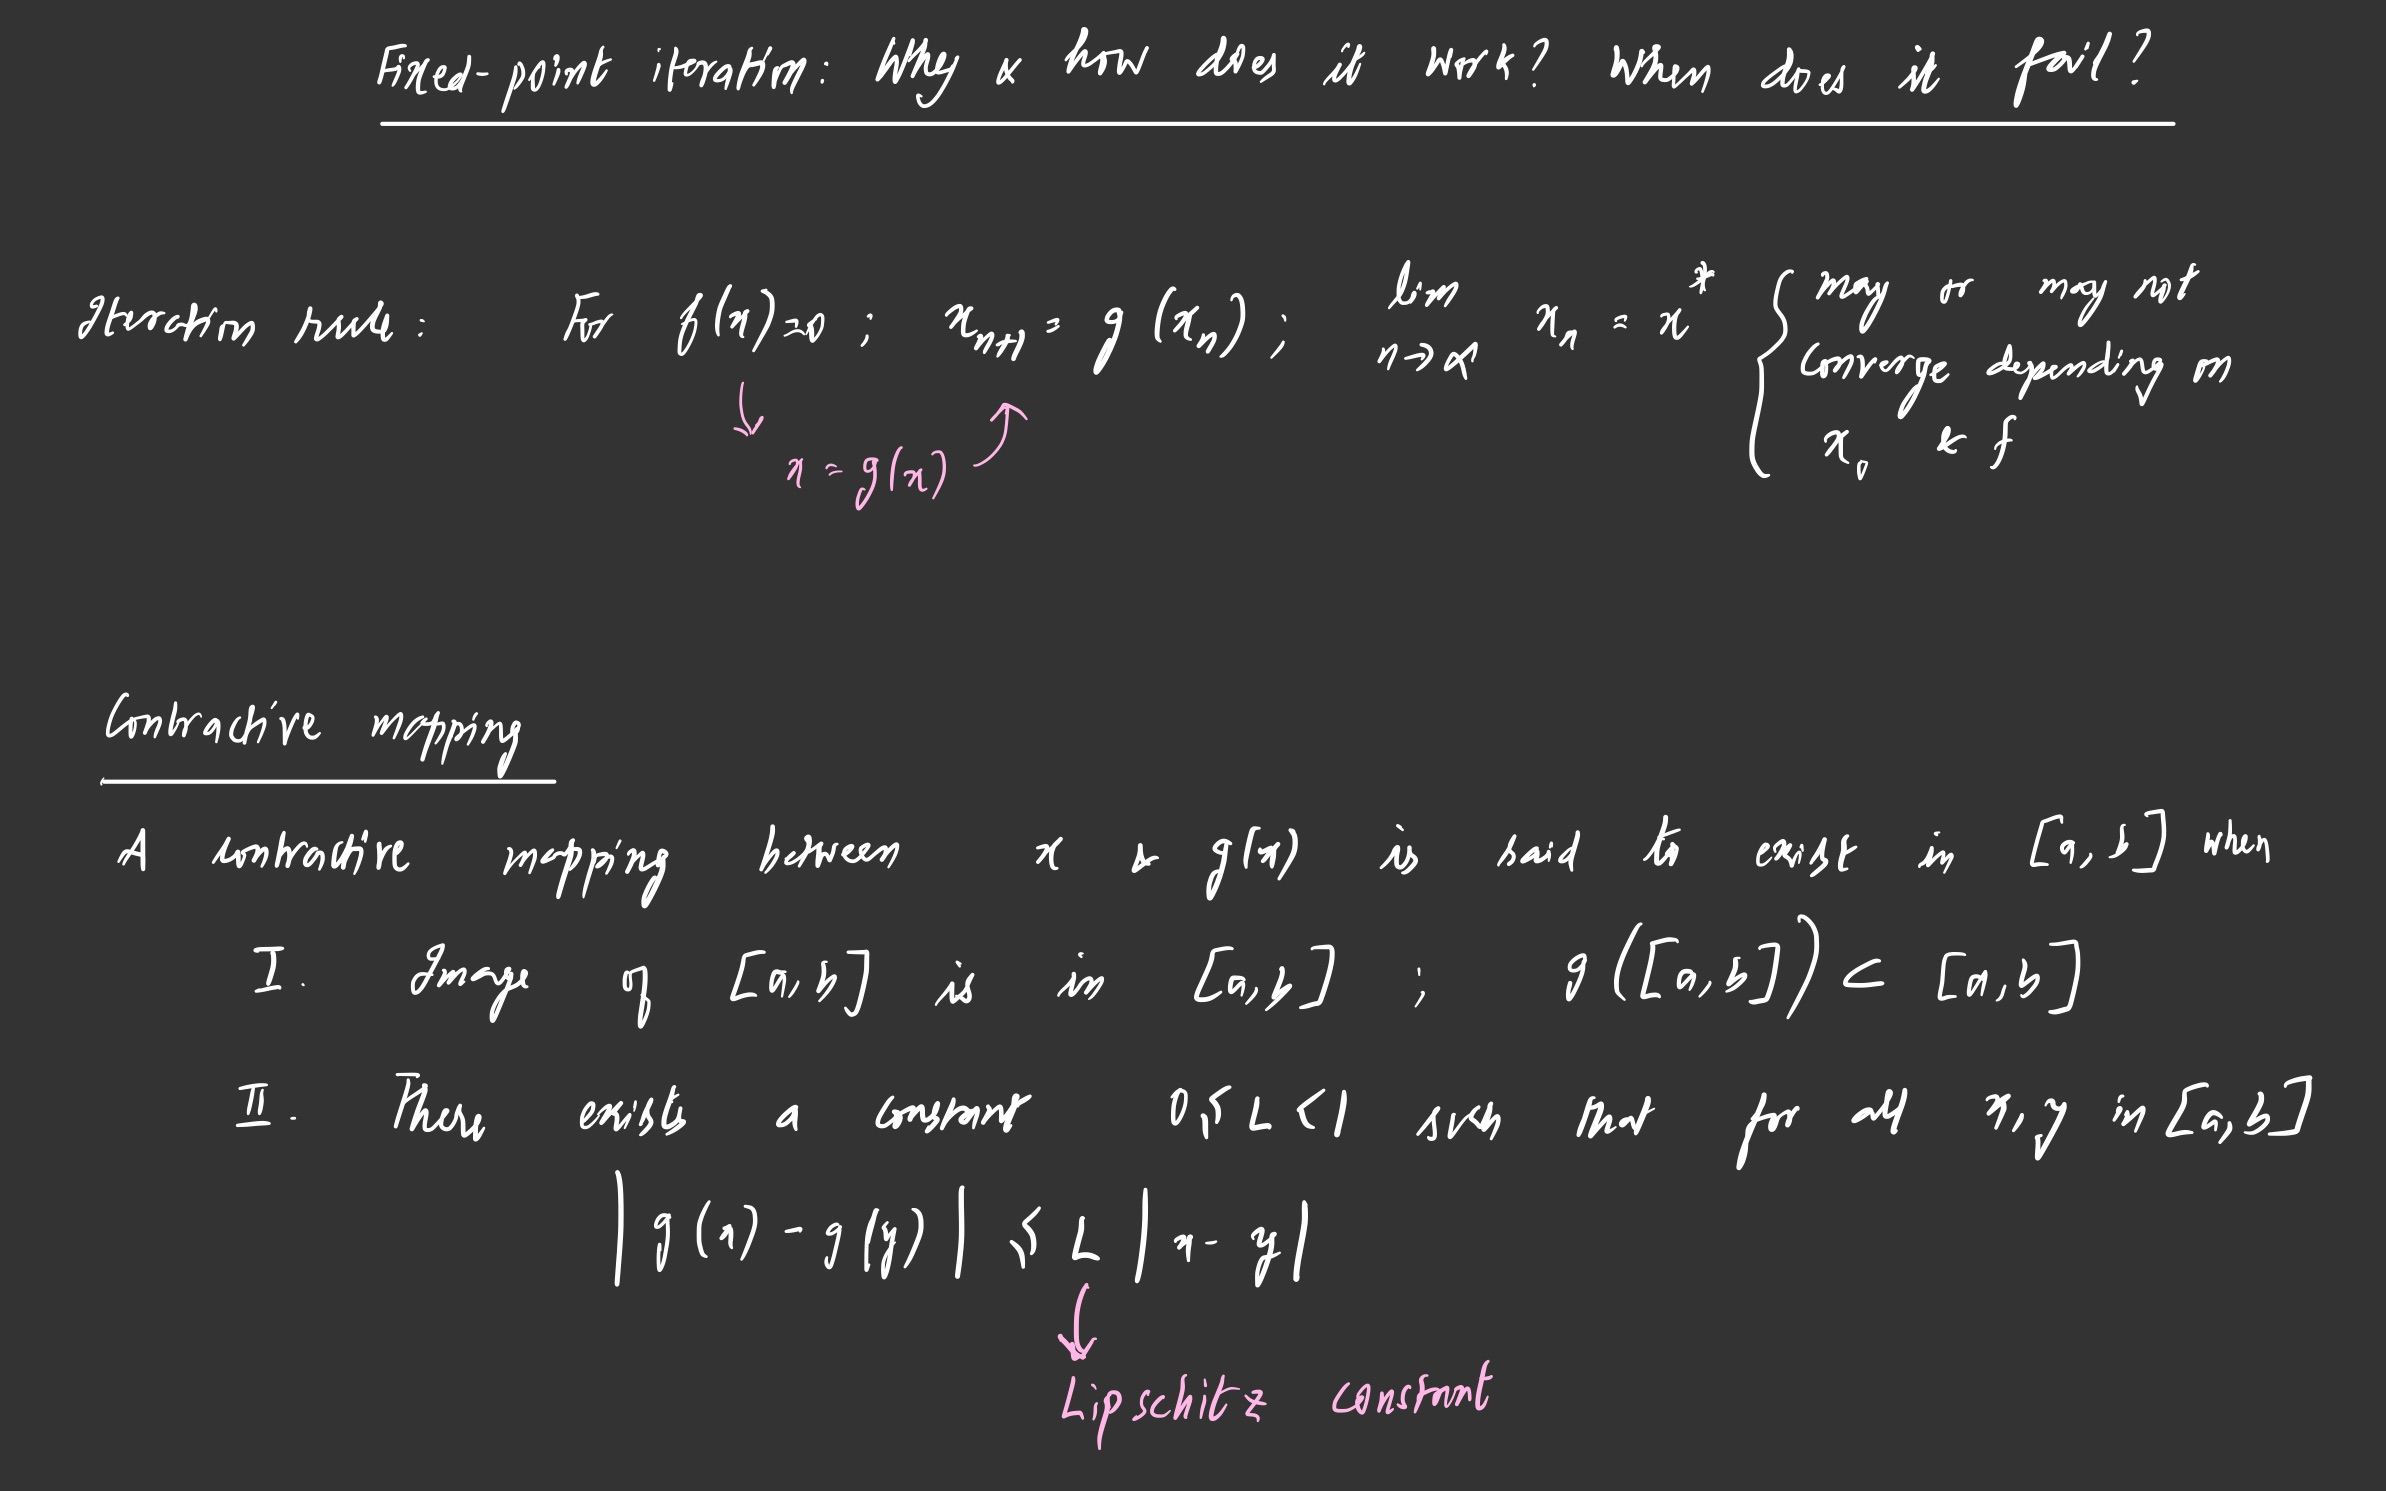 Fixed-point iteration: Why & how does it work? When does it fail?
Iteration rule: For f(x)=0 ; x_{n+1} = g(x_n) ; lim_{n→∞} x_n = x* { may or may not
converge depending on
x_0 & f
x = g(x)
Contractive mapping
A contractive mapping between x & g(x) is said to exist in [a,b] when
I. Image of [a,b] is in [a,b] ; g([a,b]) ⊂ [a,b]
II. There exists a constant 0 ≤ L < 1 such that for all x, y in [a,b]
|g(x) - g(y)| ≤ L |x - y|
Lipschitz constant